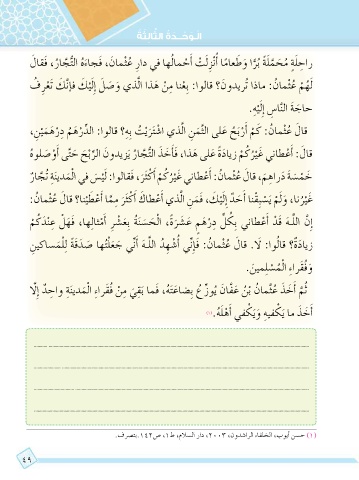 الوحدة الثالثة
راحِلَةٍ مُحَمَّلَةً بُرًّا وَطَعامًا أُنْزِلَتْ أَحْمالُها في دارِ عُثْمانَ، فَجاءَهُ التُّجّارُ، فَقالَ
لَهُمْ عُثْمانُ: ماذا تُريدونَ؟ قالوا: بِعْنا مِنْ هَذا الَّذي وَصَلَ إِلَيْكَ فَإِنَّكَ تَعْرِفُ
حاجَةَ النّاسِ إِلَيْهِ.
قالَ عُثْمانُ: كَمْ أَرْبَحُ عَلى الثَّمَنِ الَّذي اشْتَرَيْتُ بِهِ؟ قالوا: الدِّرْهَمُ دِرْهَمَيْنِ،
قالَ: أَعْطاني غَيْرُكُمْ زِيادَةً عَلى هَذا، فَأَخَذَ التُّجّارُ يَزيدونَ الرِّبْحَ حَتّى أَوْصَلوهُ
خَمْسَةَ دَراهِمَ، قالَ عُثْمانُ: أَعْطاني غَيْرُكُمْ أَكْثَرَ، فَقالوا: لَيْسَ في الْمَدينَةِ تُجّارٌ
غَيْرُنا، وَلَمْ يَسْبِقْنا أَحَدٌ إِلَيْكَ، فَمَنِ الَّذي أَعْطاكَ أَكْثَرَ مِمّا أَعْطَيْنا؟ قالَ عُثْمانُ:
إِنَّ اللَّـهَ قَدْ أَعْطاني بِكُلِّ دِرْهَمٍ عَشَرَةً، الْحَسَنَةُ بِعَشْرِ أَمْثالِها، فَهَلْ عِنْدَكُمْ
زِيادَةٌ؟ قالوا: لَا. قالَ عُثْمانُ: فَإِنّي أُشْهِدُ اللَّـهَ أَنّي جَعَلْتُها صَدَقَةً لِلْمَساكينِ
وَفُقَراءِ الْمُسْلِمينَ.
ثُمَّ أَخَذَ عُثْمانُ بْنُ عَفّانَ يُوزِّعُ بِضاعَتَهُ، فَما بَقِيَ مِنْ فُقَراءِ الْمَدينَةِ واحِدٌ إِلّا
أَخَذَ ما يَكْفيهِ وَيَكْفي أَهْلَهُ.(١)
(١) حسن أيوب، الخلفاء الراشدون، ٢٠٠٣، دار السلام، ط١، ص١٤٢. بتصرف.
٤٩